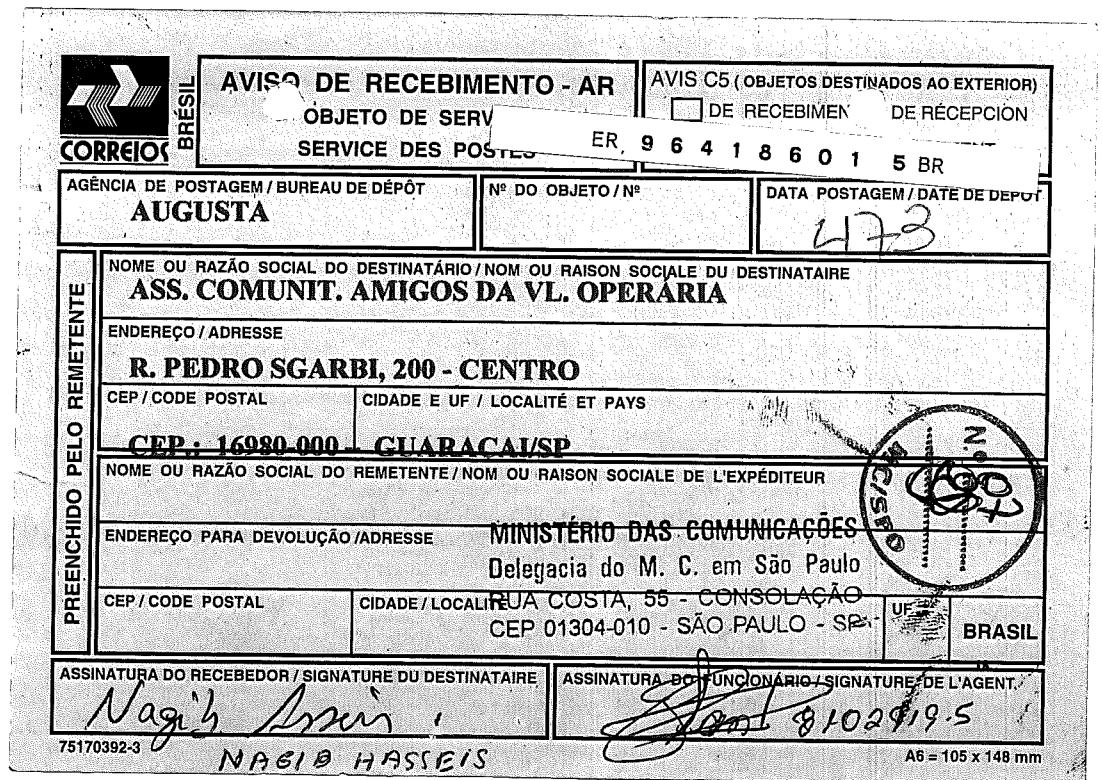 CORREIOS
BRÉSIL
AVISO DE RECEBIMENTO - AR
OBJETO DE SERV
SERVICE DES POSTES
AVIS C5 ( OBJETOS DESTINADOS AO EXTERIOR)
DE RECEBIMEN DE RÉCEPTION
ER 9 6 4 1 8 6 0 1 5 BR
AGÊNCIA DE POSTAGEM / BUREAU DE DÉPÔT
AUGUSTA
Nº DO OBJETO / Nº
DATA POSTAGEM / DATE DE DEPOT
473
PREENCHIDO PELO REMETENTE
NOME OU RAZÃO SOCIAL DO DESTINATÁRIO / NOM OU RAISON SOCIALE DU DESTINATAIRE
ASS. COMUNIT. AMIGOS DA VL. OPERÁRIA
ENDEREÇO / ADRESSE
R. PEDRO SGARBI, 200 - CENTRO
CEP / CODE POSTAL
CIDADE E UF / LOCALITÉ ET PAYS
CEP.: 16980-000 - GUARAÇAI/SP
NOME OU RAZÃO SOCIAL DO REMETENTE / NOM OU RAISON SOCIALE DE L'EXPÉDITEUR
ENDEREÇO PARA DEVOLUÇÃO /ADRESSE
MINISTÉRIO DAS COMUNICAÇÕES
Delegacia do M. C. em São Paulo
RUA COSTA, 55 - CONSOLAÇÃO
CEP 01304-010 - SÃO PAULO - SP
CEP / CODE POSTAL
CIDADE / LOCALITÉ
UF
BRASIL
N.º
MC/SP
ASSINATURA DO RECEBEDOR / SIGNATURE DU DESTINATAIRE
Nagib Assis
NAGIB HASSEIS
ASSINATURA DO FUNCIONÁRIO / SIGNATURE DE L'AGENT
8102919-5
75170392-3
A6 = 105 x 148 mm